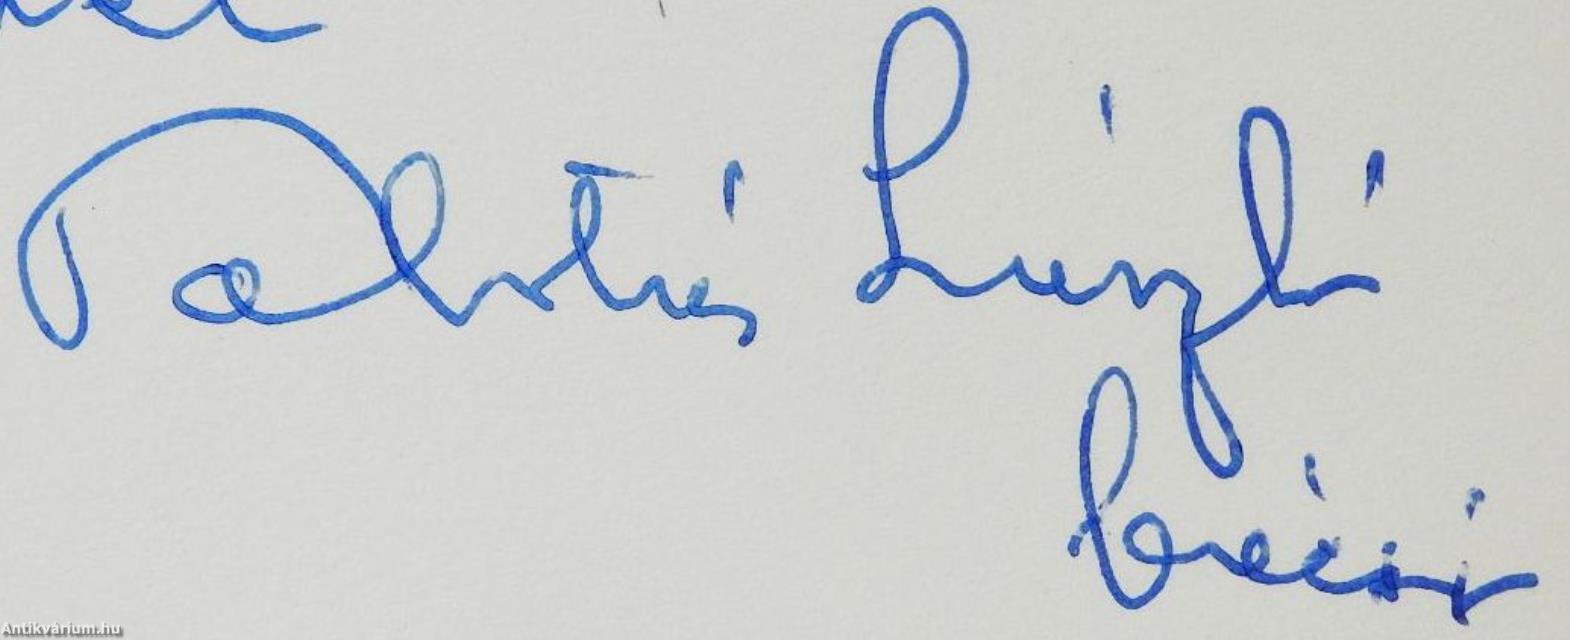 Palotás László
bácsi
Antikvárium.hu